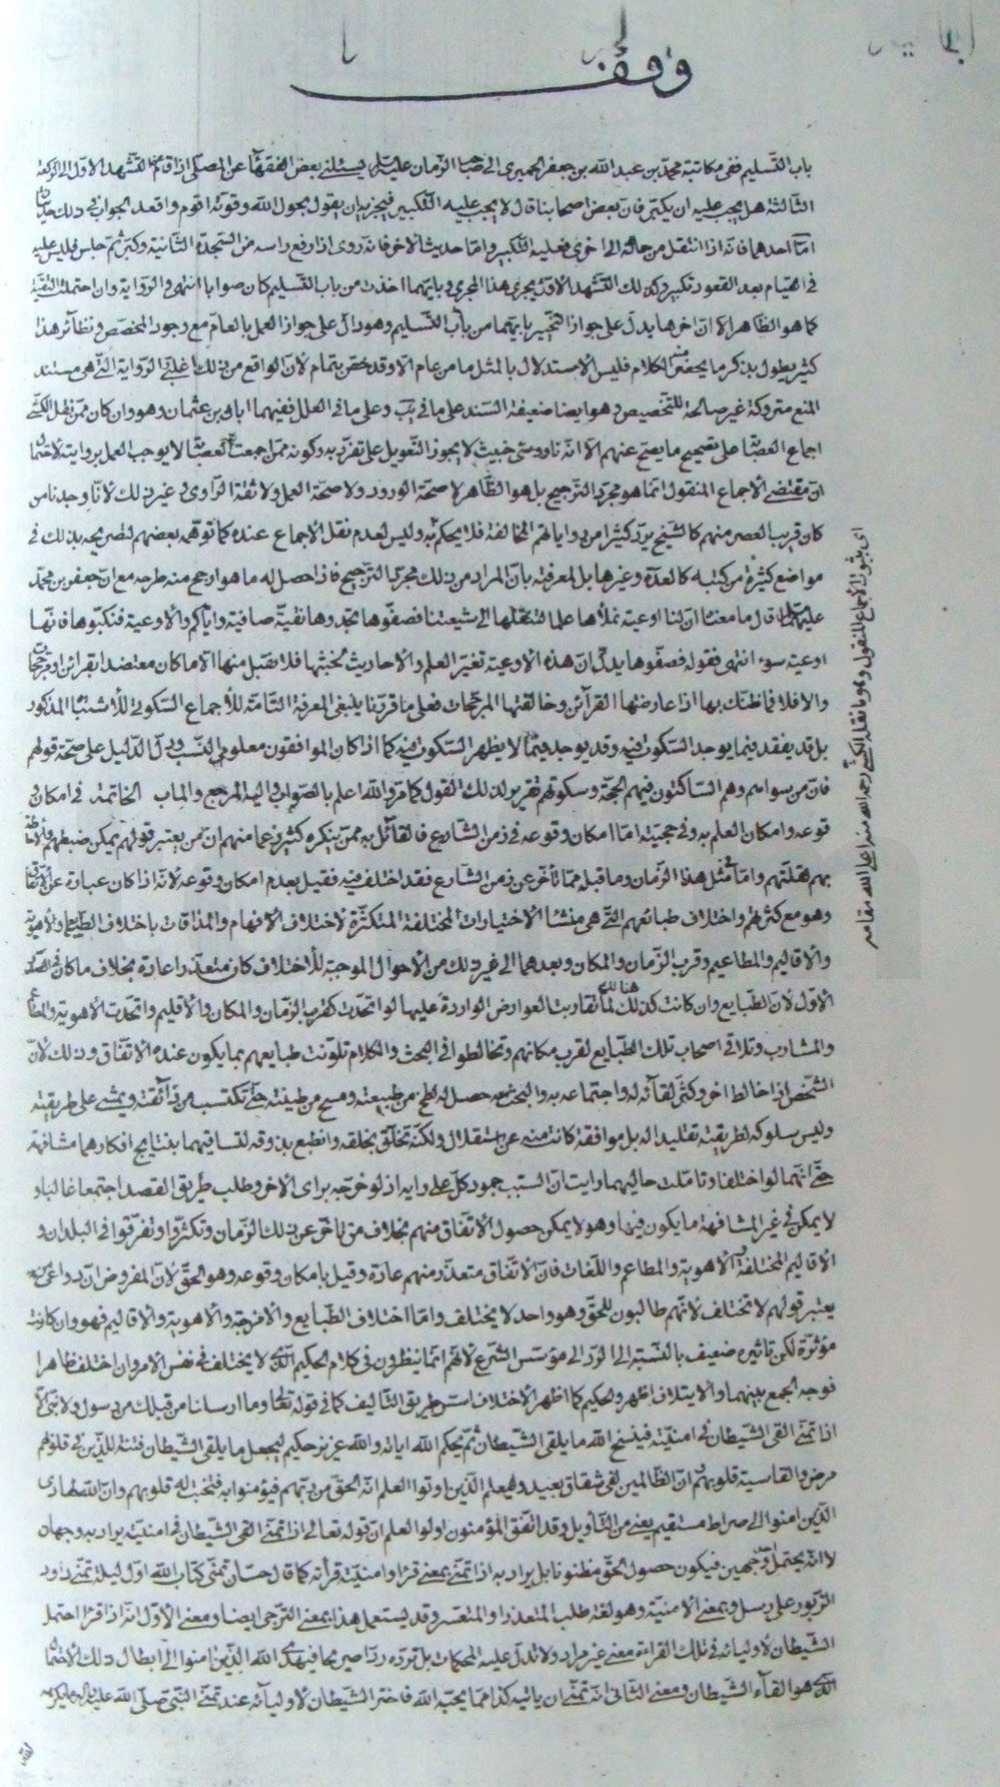 وقف
باب التسليم ففي مكاتبة محمد بن عبد الله بن جعفر الحميري الى صاحب الزمان عليه السلام يسئلني بعض الفقهاء عن المصلى اذا قام من التشهد الاول الى الركعة
الثالثة هل يجب عليه ان يكبر فان بعض اصحابنا قال لا يجب عليه التكبير فيجزيه ان يقول بحول الله وقوته اقوم واقعد الجواب في ذلك حديثان
اما احدهما فانه اذا انتقل من حالة الى اخرى فعليه التكبير واما حديث الاخر فانه روى اذا رفع راسه من السجدة الثانية وكبر ثم جلس فليس عليه
في القيام بعد القعود تكبير وكذلك التشهد الاول يجرى هذا المجرى وبايهما اخذت من باب التسليم كان صوابا انتهى والرواية وان احتملت التقية
كما هو الظاهر الا ان اخرها يدل على جواز التخيير بايهما من باب التسليم وهو دال على جواز العمل بالعام مع وجود المخصص ونظائر هذا
كثير يطول بذكر ما يحضرني منه الكلام فليس الاستدلال بالمثل ما من عام الا وقد خص بتمام لان الواقع من ذلك اغلبي الرواية التي هي مستند
المنع متروكة غير صالحة للتخصيص وهو ايضا ضعيفة السند على ما في يب وعلى ما في العلل ففيهما ابان بن عثمان وهو وان كان ممن نقل الكشي
اجماع العصابة على تصحيح ما يصح عنهم الا انه ناووسي خبيث لا يجوز التعويل على تفرد به وكونه ممن اجمعت العصابة لا يوجب العمل بروايته لاحتمال
ان مقتضى الاجماع المنقول انما هو مجرد الترجيح بل هو الظاهر لا صحة الورود ولا صحة العمل ولا ثقة الراوى وغير ذلك لانا وجدنا من
كان قريب العصر منهم كالشيخ يرد كثيرا من رواياتهم المخالفة فلا يحكم به وليس لعدم نقل الاجماع عنده كما توهمه بعضهم لتصريحه بذلك في
مواضع كثيرة من كتبه كالعدة وغيرها بل لمعرفته بان المراد من ذلك مجرد الترجيح فاذا حصل له ما هو ارجح منه طرحه مع ان جعفر بن محمد
عليهما السلام قال ما معناه ان لنا اوعية نملأها علما لننقلها الى شيعتنا فصفوها تجدوها نقية صافية واياكم والاوعية فنكبوها فانها
اوعية سوء انتهى فقوله فصفوها يدل ان هذه الاوعية تغير العلم والاحاديث لخبثها فلا نقبل منها الا ما كان معتضدا بقرائن او مرجحات
والا فلا فما ظنك بها اذا عارضتها القرائن وخالفتها المرجحات فعلى ما قررنا ينبغى المعرفة التامة للاجماع السكوتي للاشتباه المذكور
بل قد يفقد فيما يوجد السكوت فيه وقد يوجد فيما لا يظهر السكوت فيه كما اذا كان الموافقون معلومي النسب ودل الدليل على صحة قولهم
فان من سواهم وهم الساكتون فيهم الحجة وسكوتهم تقرير لذلك القول كما مر والله اعلم بالصواب واليه المرجع والماب الخاتمة في امكان و
قوعه وامكان العلم به وفي حجيته اما امكان وقوعه في زمن الشارع فالقائل به ممن ينكره كثير زعما منهم ان من يعتبر قولهم يمكن ضبطهم والاحاطة
بهم لقلتهم واما في مثل هذا الزمان وما قبله مما تأخر عن زمن الشارع فقد اختلف فيه فقيل بعدم امكان وقوعه لانه اذا كان عبارة عن اتفاق
وهو مع كثرتهم واختلاف طبائعهم التي هي منشأ الاختيارات المختلفة المتكثرة لاختلاف الافهام والمذاقات باختلاف الطبايع والاهوية
والاقاليم والمطاعيم وقرب الزمان والمكان وبعدهما الى غير ذلك من الاحوال الموجبة للاختلاف كان متعذرا عادة بخلاف ما كان في الصدر
الاول لان الطبايع وان كانت كذلك هنالك لما تقاربت العوارض الواردة عليها لو اتحدت كقرب الزمان والمكان والاقليم واتحدت الاهوية والمطاعم
والمشارب وتلاقى اصحاب تلك الطبايع لقرب مكانهم وتخالطوا في البحث والكلام تلونت طبايعهم بما يكون عنده الاتفاق وذلك لان
الشخص اذا خالط اخر وكثر لقائه له واجتماعه به والبحث معه حصل له لطخ من طبيعته ومسح من طينته حتى تكتسب من ذائقته ويمشي على طريقته
وليس سلوكه لطريقته تقليدا له بل موافقة كانت منه عن استقلال ولكنه تخلق بخلقه وانطبع بذوقه لتساقيهما بنتايج افكارهما مشافهة
حتى انهما لو اختلفا وتاملت حاليهما رايت ان السبب جمود كل على رايه اذ لو خرج به براى الاخر وطلب طريق القصد اجتمعا غالبا و
لا يمكن في غير المشافهة ما يكون فيها وهو لا يمكن حصول الاتفاق منهم بخلاف من تاخر عن ذلك الزمان وتكثروا وتفرقوا في البلدان و
الاقاليم المختلفة الاهوية والمطاعم واللغات فان الاتفاق متعذر منهم عادة وقيل بامكان وقوعه وهو الحق لان المفروض ان دواعي من
يعتبر قولهم لا تختلف لانهم طالبون للحق وهو واحد لا يختلف واما اختلاف الطبايع والامزجة والاهوية والاقاليم فهو وان كانت
مؤثرة لكن تاثيره ضعيف بالنسبة الى الرد الى مؤسس الشرع لانهم انما ينظرون في كلام الحكيم الذي لا يختلف في نفس الامر وان اختلف ظاهرا
فوجه الجمع بينهما والايتلاف اظهره الحكيم كما اظهر الاختلاف استر طريق التاليف كما في قوله تعالى وما ارسلنا من قبلك من رسول ولا نبي الا
اذا تمنى القى الشيطان في امنيته فينسخ الله ما يلقى الشيطان ثم يحكم الله اياته والله عزيز حكيم ليجعل ما يلقى الشيطان فتنة للذين في قلوبهم
مرض والقاسية قلوبهم وان الظالمين لفي شقاق بعيد وليعلم الذين اوتوا العلم انه الحق من ربهم فيؤمنوا به فتخبت له قلوبهم وان الله لهادى
الذين امنوا الى صراط مستقيم يعنى من التأويل وقد اتفق المؤمنون اولوا العلم ان قوله تعالى اذا تمنى القى الشيطان في امنيته يراد به وجهان
لا انه يحتمل وجهين فيكون حصول الحق مظنونا بل يراد به اذا تمنى بمعنى قرا وامنيته قرأته كما قال حسان تمنى كتاب الله اول ليلة تمنى داود
الزبور على رسل وبمعنى الامنية وهو لغة طلب المتعذر او المتعسر وقد يستعمل هذا بمعنى الترجي ايضا ومعنى الاول انه اذا قرا احتمل
الشيطان لاوليائه في تلك القراءة معنى غير مراد ولا تدل عليه المحكمات بل ترده ردا صريحا فيهدى الله الذين امنوا الى ابطال ذلك الاحتمال
الذي هو القاء الشيطان ومعنى الثاني انه تمنى ان ياتيه كذا مما يحبه الله فاختر الشيطان لاوليائه عند تمنى النبي صلى الله عليه واله ما يكرهه
اى بثبوت الاجماع المنقول وهو ما نقله الكشي رحمه الله منه اعلى الله مقامه